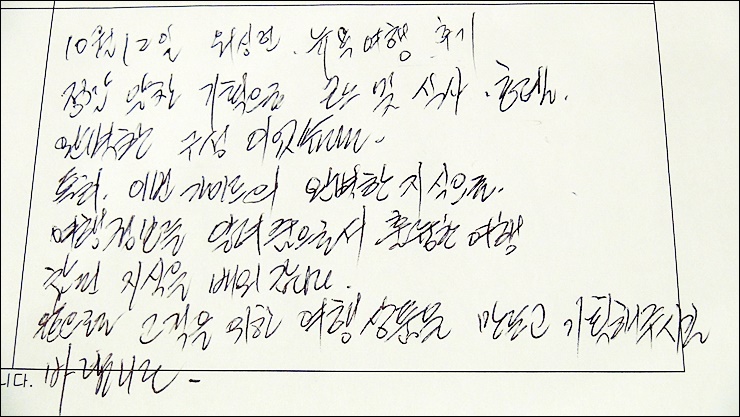 10월 12일 위성연. 뉴욕여행 후기
적절한 알찬 기획으로 코스 및 식사. 호텔.
완벽한 구성 이었습니다.
특히. 이번 가이드의 완벽한 지식으로.
여행정보를 알려줌으로서 훌륭한 여행
지식을 배워 갑니다.
앞으로도 고객을 위한 여행상품을 만들고 기획해주시길
니다. 바랍니다.